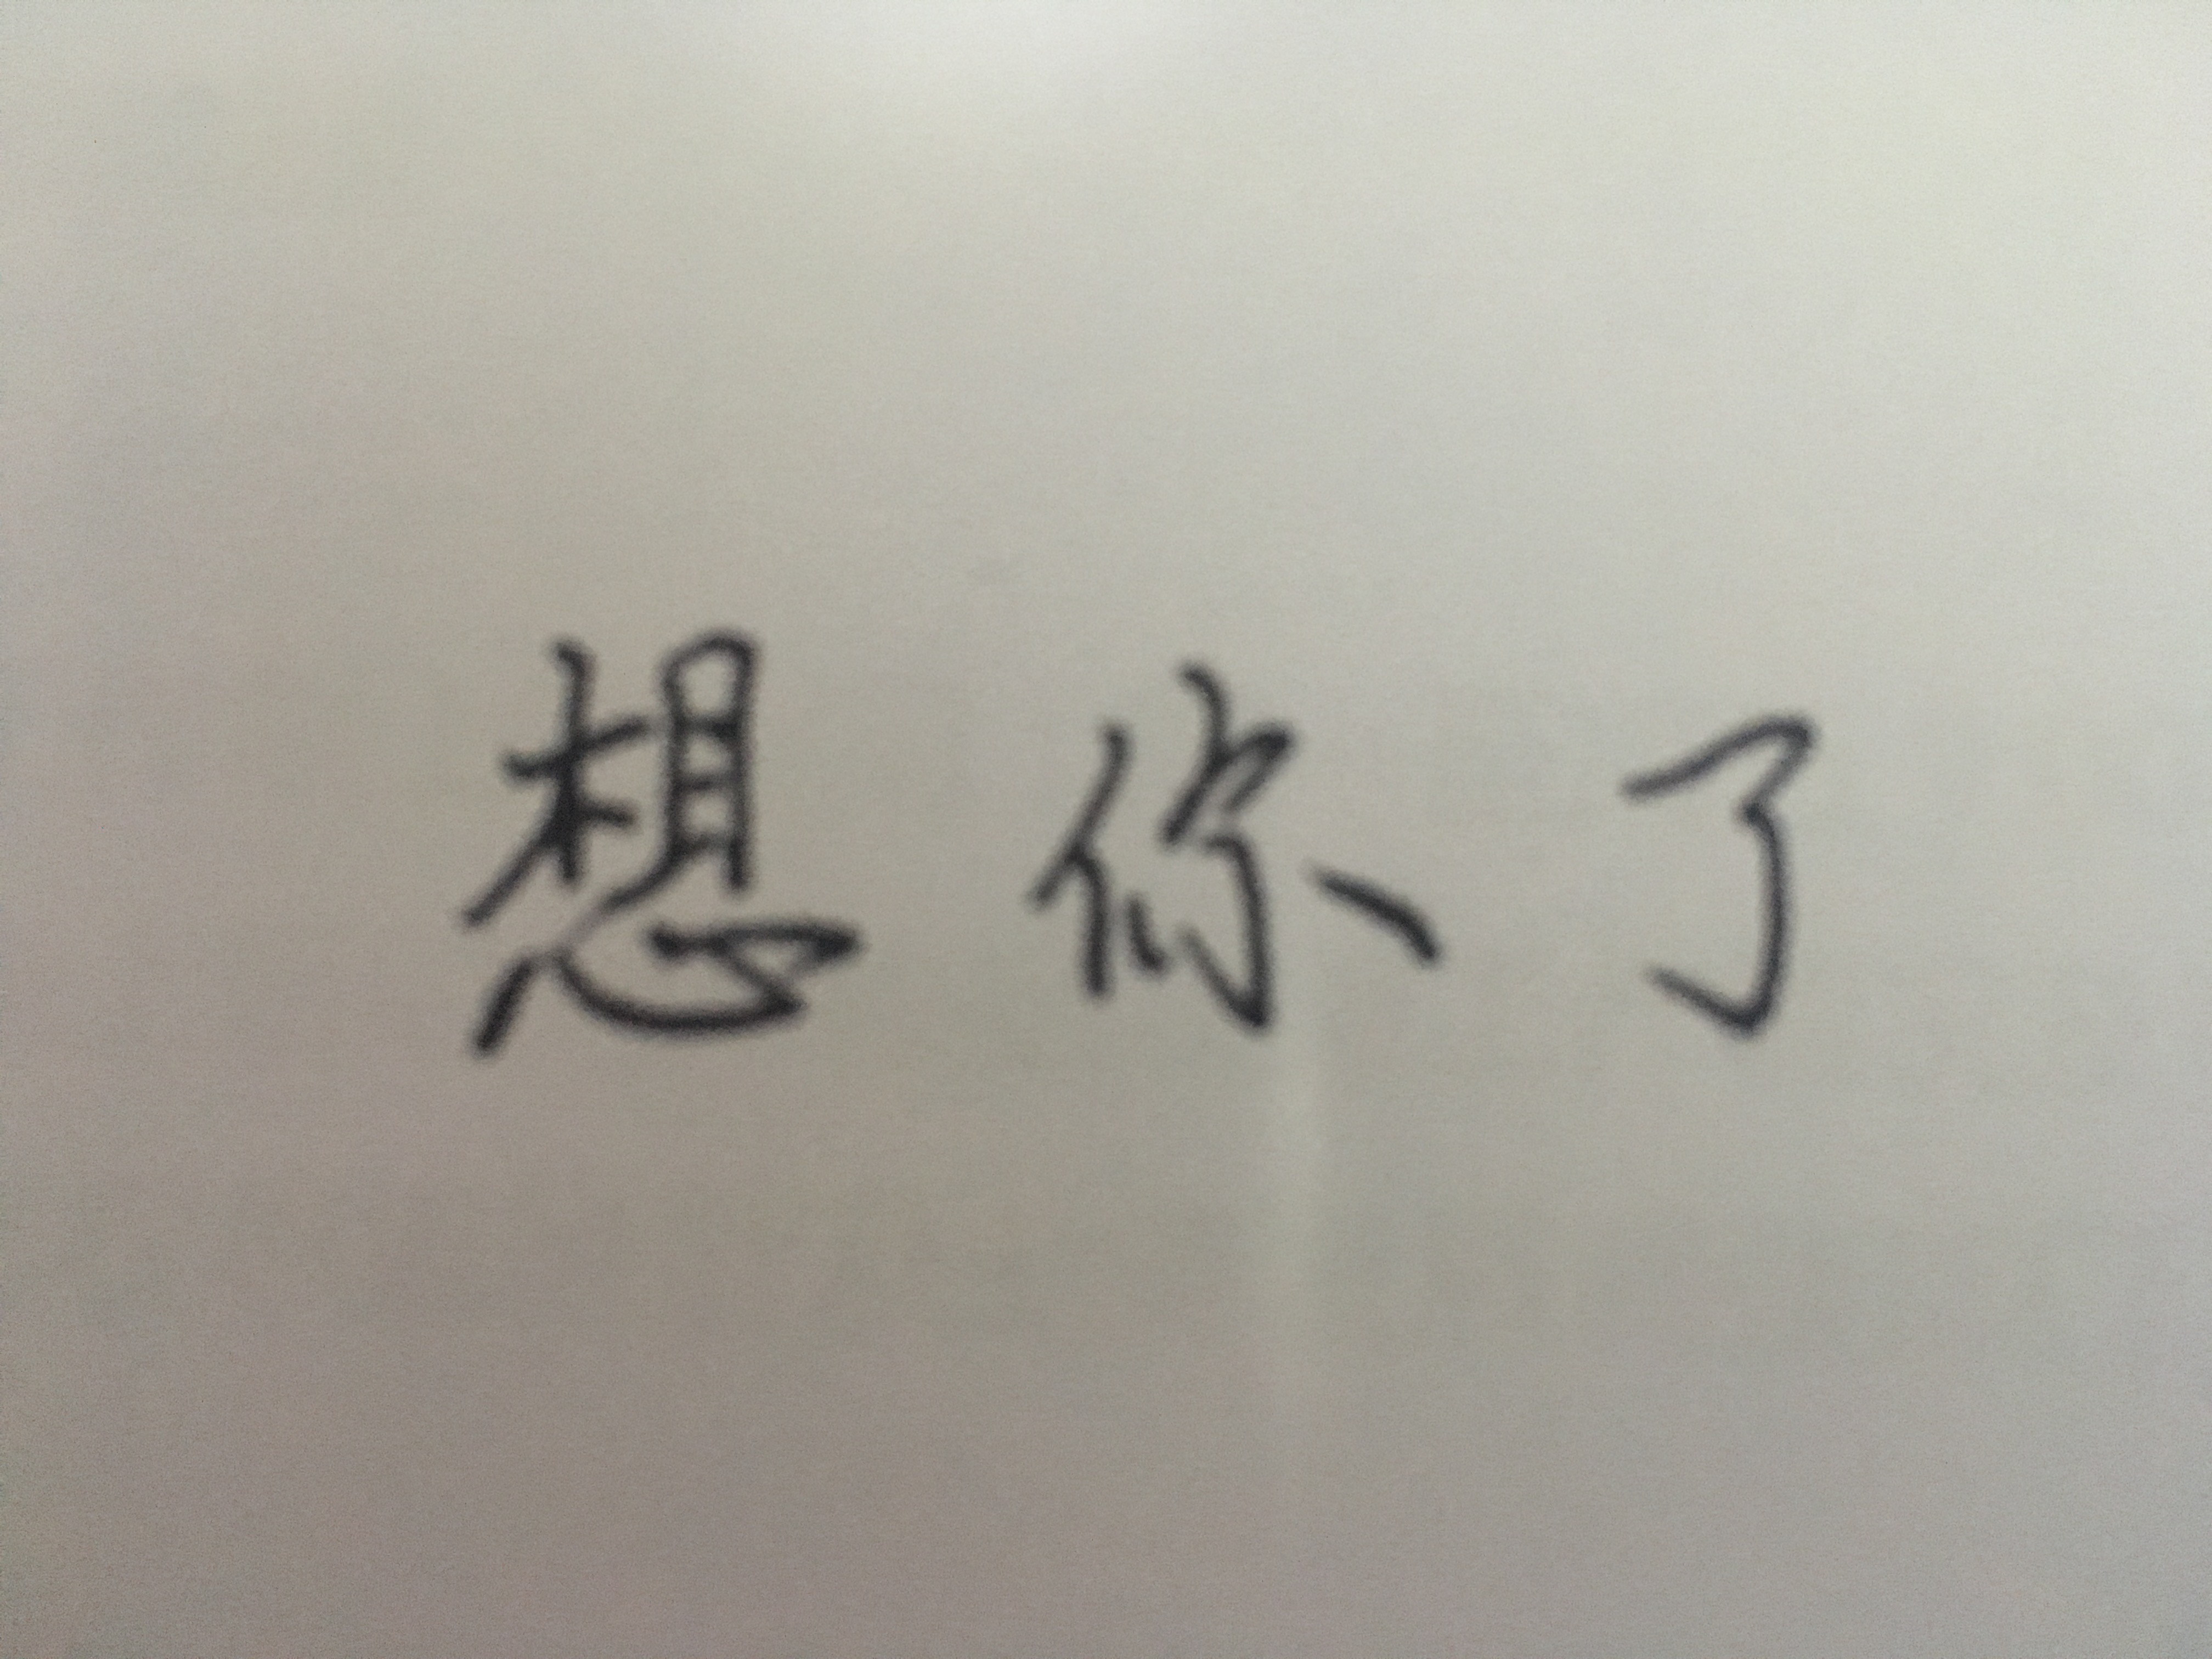 想你了